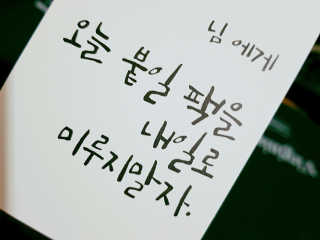 님에게
오늘 붙일 팩을
내일로
미루지말자.